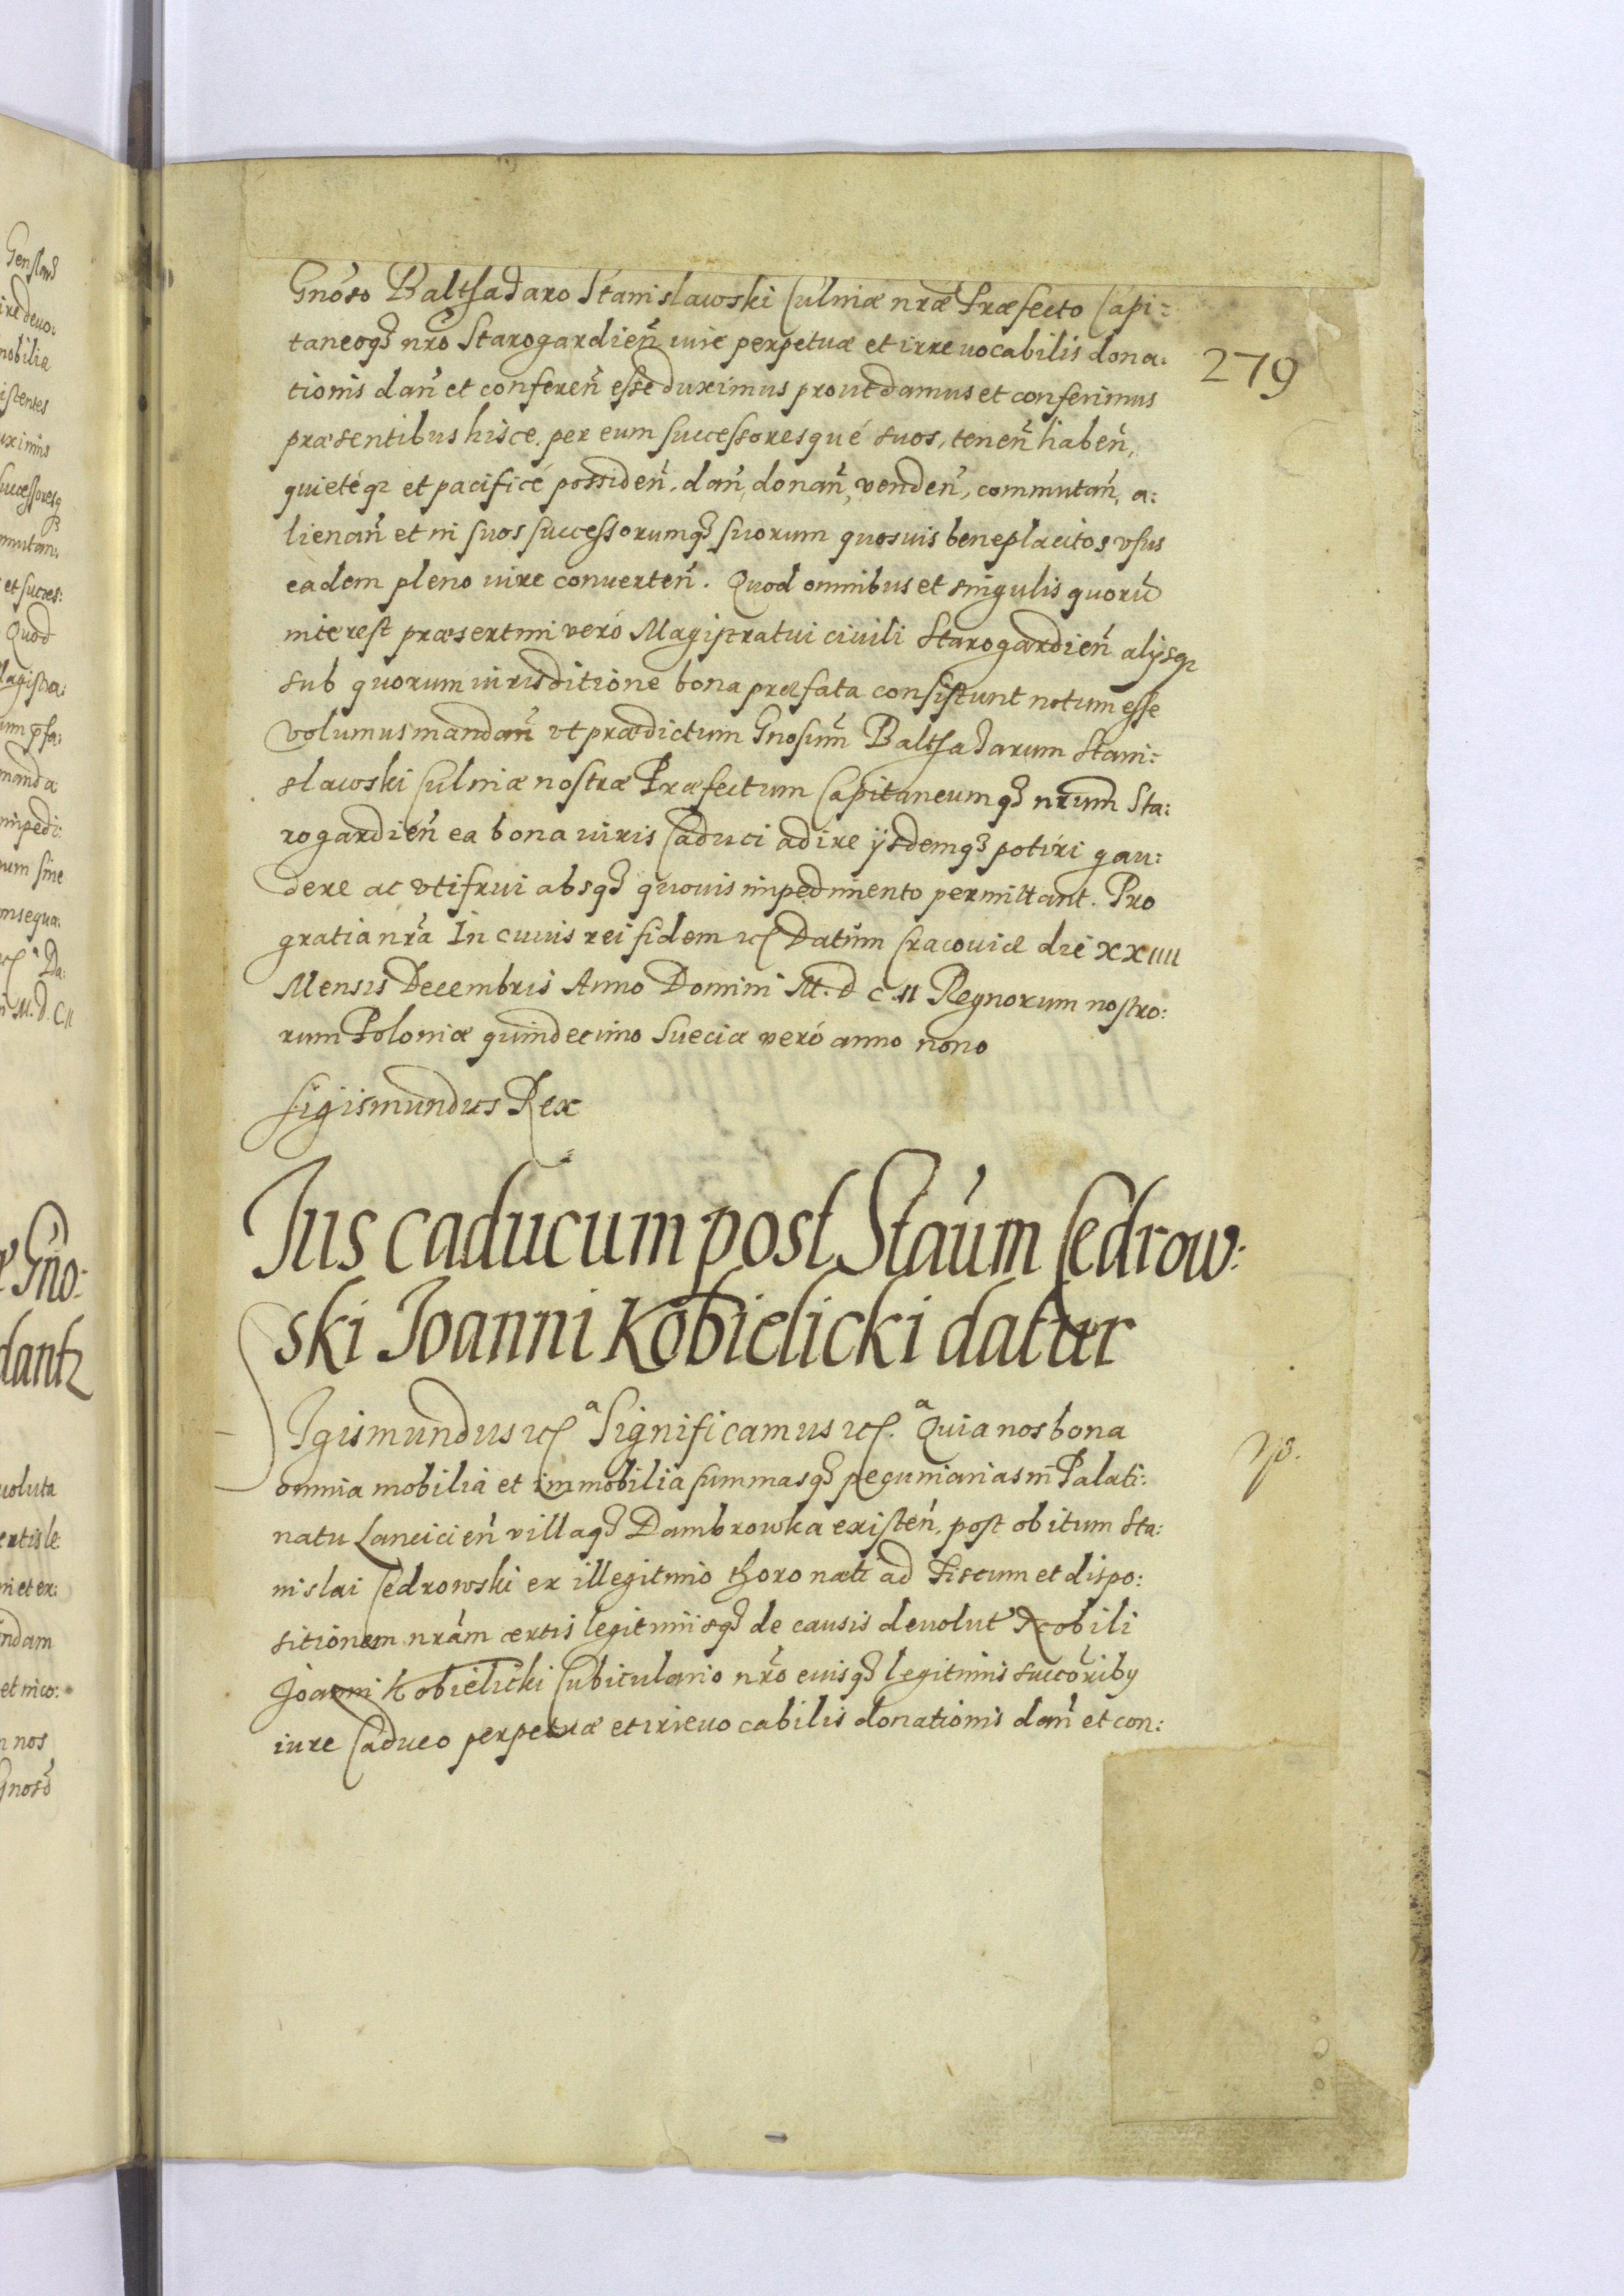 279
Gnoso Baltsadaro Stanislawski Culinæ nræ Præfecto Capi=
taneoq3 nro Starogardien iure perpetuæ et irreuocabilis dona:
tionis dan et conferen esse duximus prout damus et conferimus
præsentibus hisce. per eum successoresqué suos, tenen haben,
quietéq3 et pacificé possiden. dan, donan, venden, commutan, a:
lienan et in suos successorumq3 suorum quosuis beneplacitos vsus
eadem pleno iure conuerten. Quod omnibus et singulis quorū
interest præsertim veró Magistratui ciuili Starogardien alijsq3
sub quorum iurisditione bona præfata consistunt notum esse
volumus mandan vt prædictum Gnosum Baltsadarum Stani=
slawski Culinæ nostræ Præfectum Capitaneumq3 nrum Sta:
rogardien ea bona iuris Caduci adire ijsdemq3 potiri gau:
dere ac vtifrui absq3 quouis impedimento permittant. Pro
gratia nra In cuius rei fidem etc Datum Cracouiæ die XXIIII
Mensis Decembris Anno Domini M.D C II Regnorum nostro:
rum Poloniæ quindecimo Sueciæ veró anno nono
Sigismundus Rex
Ius caducum post Staum Cedrow:
ski Joanni Kobielicki datur
Sigismundus etc a Significamus etc. a Quia nos bona
omnia mobilia et immobilia summasq3 pecuniarias in Palati:
natu Lancicien villaq3 Dambrowka existen, post obitum Sta:
nislai Cedrowski ex illegitimo thoro nati ad Fiscum et dispo:
sitionem nram certis legitimisq3 de causis deuolut Nobili
Joanni Kobielicki Cubiculario nro eiusq3 legitimis succoriby
iure Caduco perpetuæ et irreuocabilis donationis dan et con: